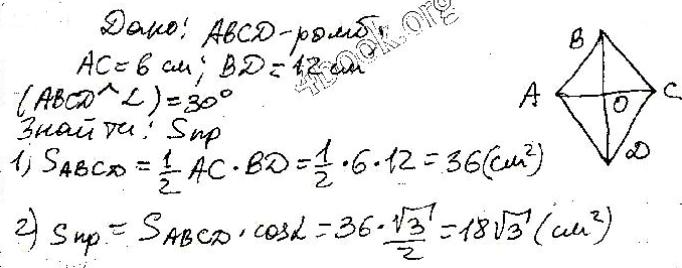 Дано: ABCD-ромб,
AC = 6 см; BD = 12 см
(ABCD^L) = 30°
Знайти: Sпр
1) SABCD = 1/2 AC · BD = 1/2 · 6 · 12 = 36 (см²)
2) Sпр = SABCD · cosL = 36 · √3/2 = 18√3 (см²)
B
A
O
C
D
4book.org